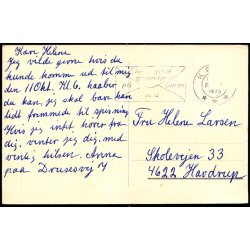 Kære Helene
Jeg vilde gerne hvis du
kunde komme ud til mig
den 11 Okt. Kl. 6. haaber
du kan, jeg skal bare have
lidt til spisning
Hvis jeg intet hører fra
dig, venter jeg dig, med
venlig hilsen. Anna
paa Drusesvej 4
Fru Helene Larsen
Skolevejen 33
4622 Havdrup